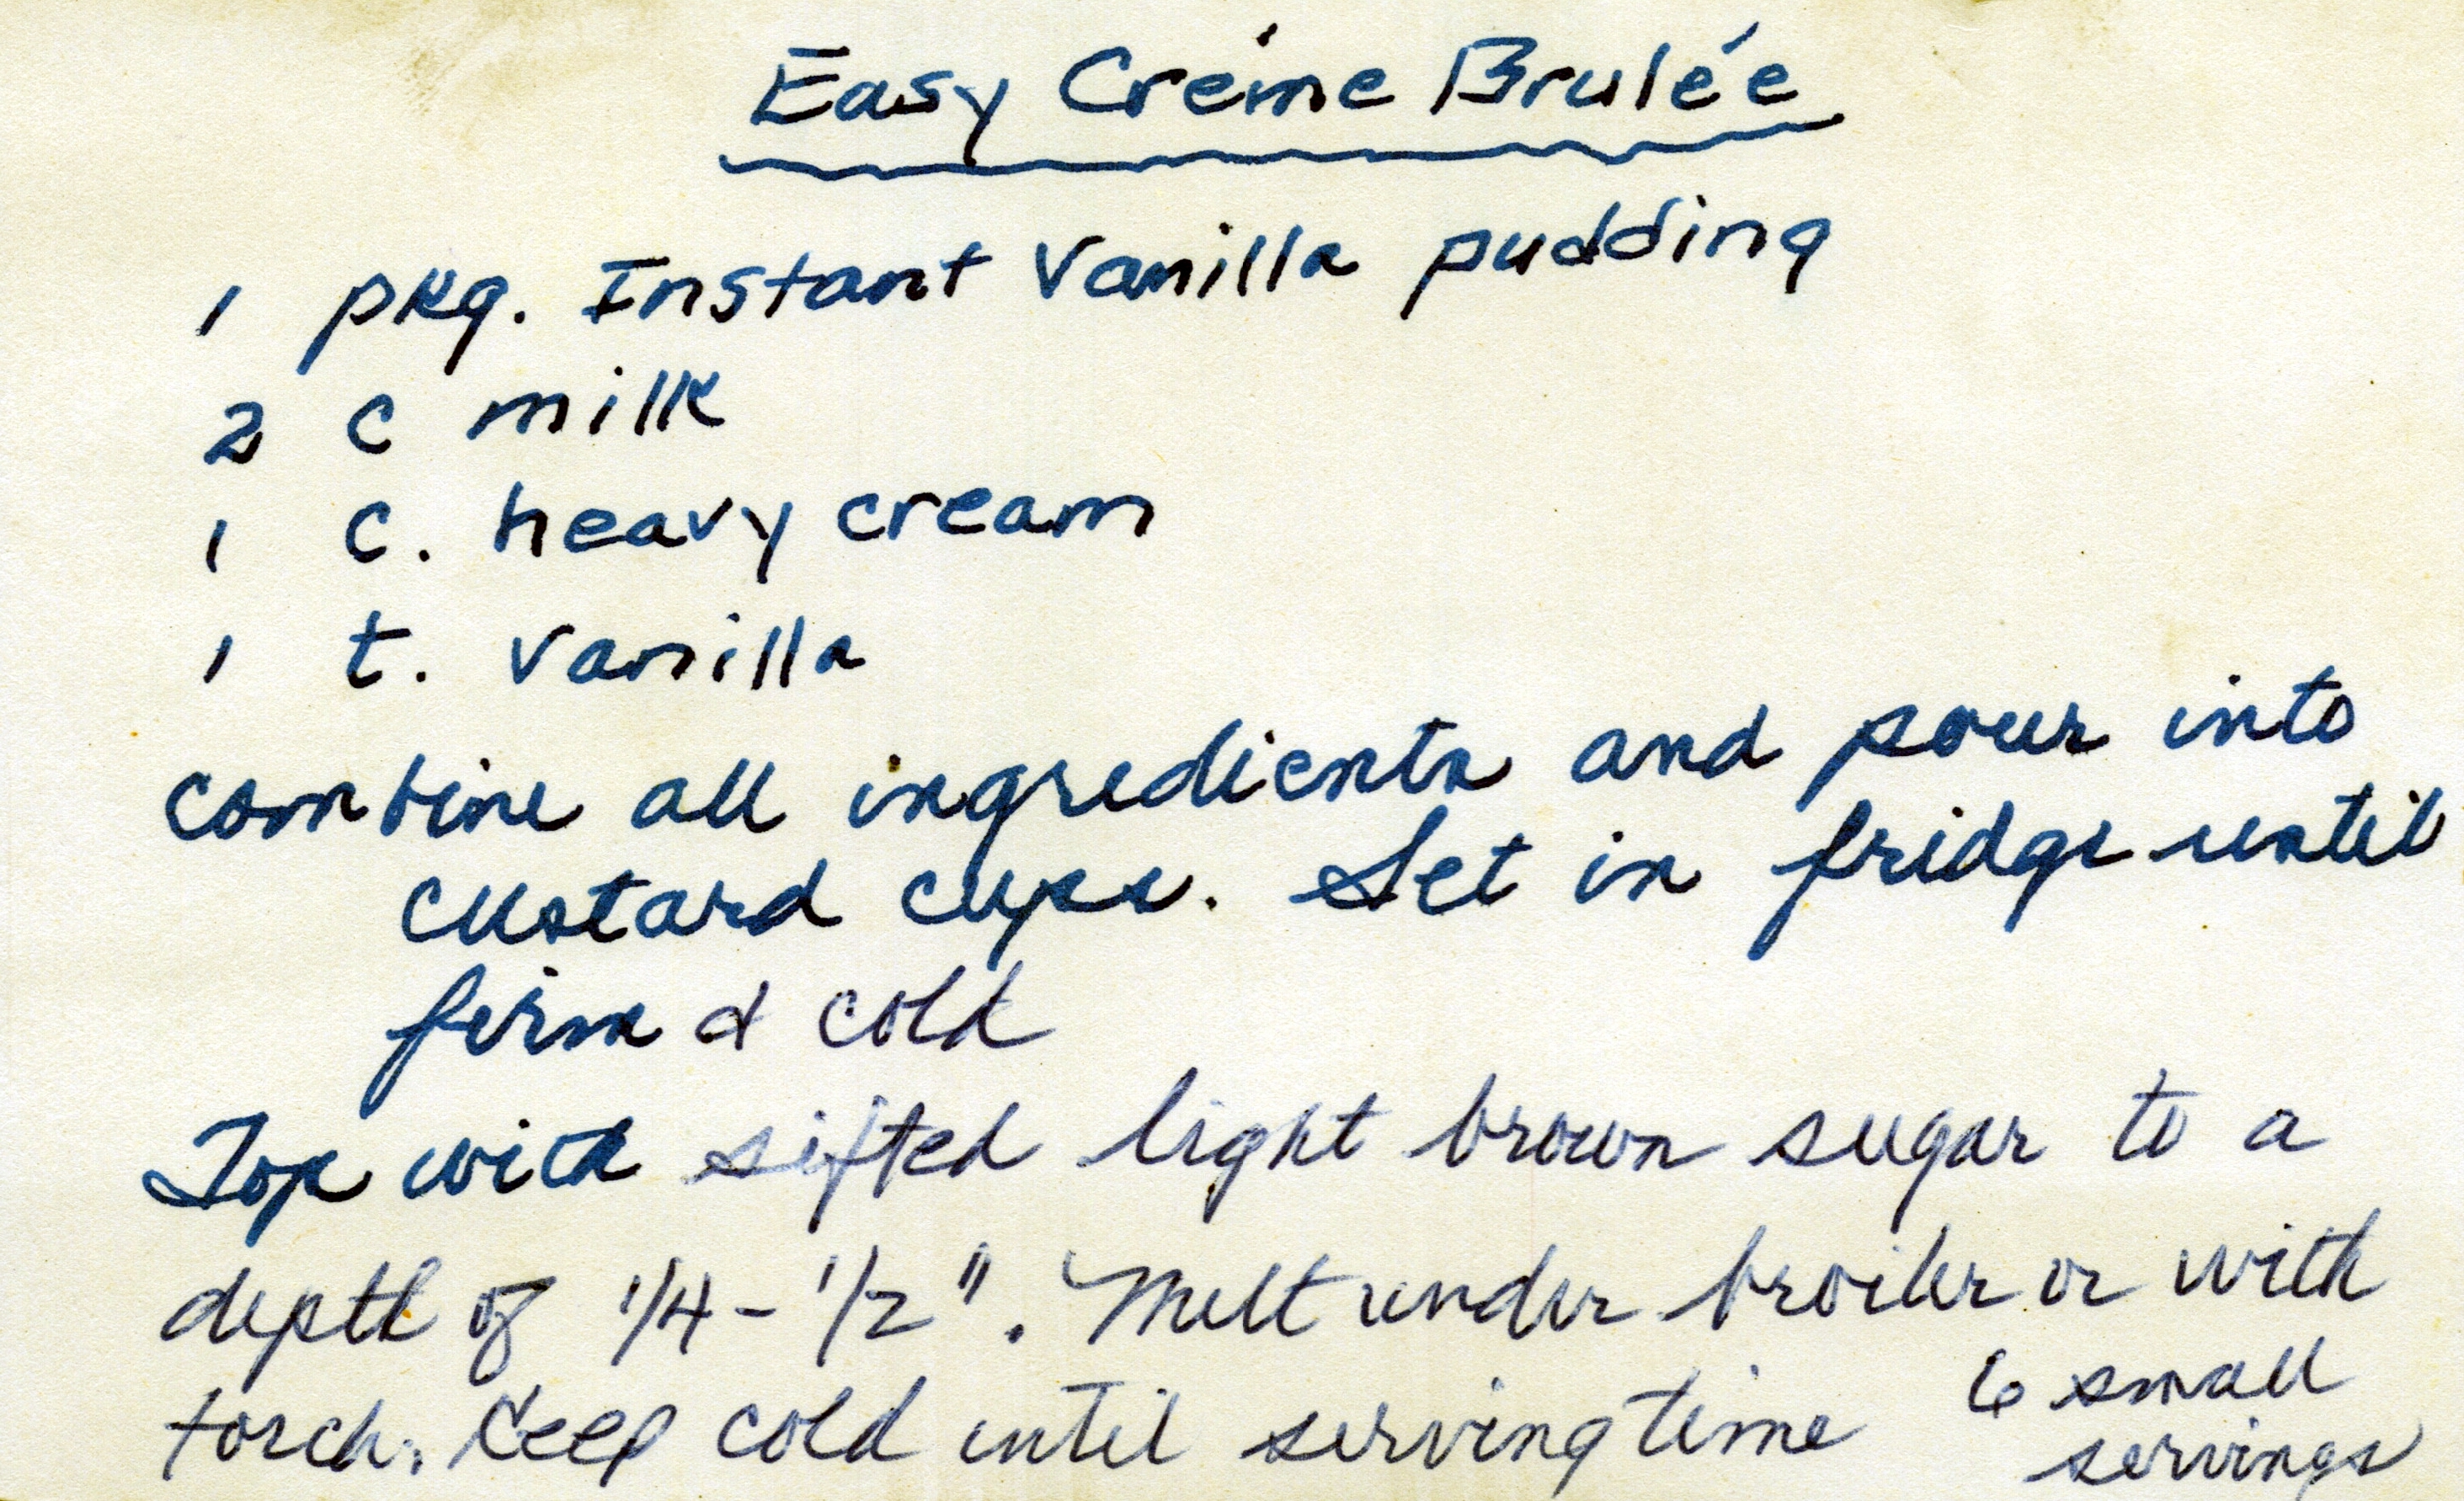 Easy Créme Brulée
1 pkg. Instant Vanilla pudding
2 c milk
1 c. heavy cream
1 t. vanilla
combine all ingredients and pour into
custard cups. Set in fridge until
firm & cold
Top with sifted light brown sugar to a
depth of 1/4 - 1/2". Melt under broiler or with
torch. Keep cold until serving time
6 small
servings